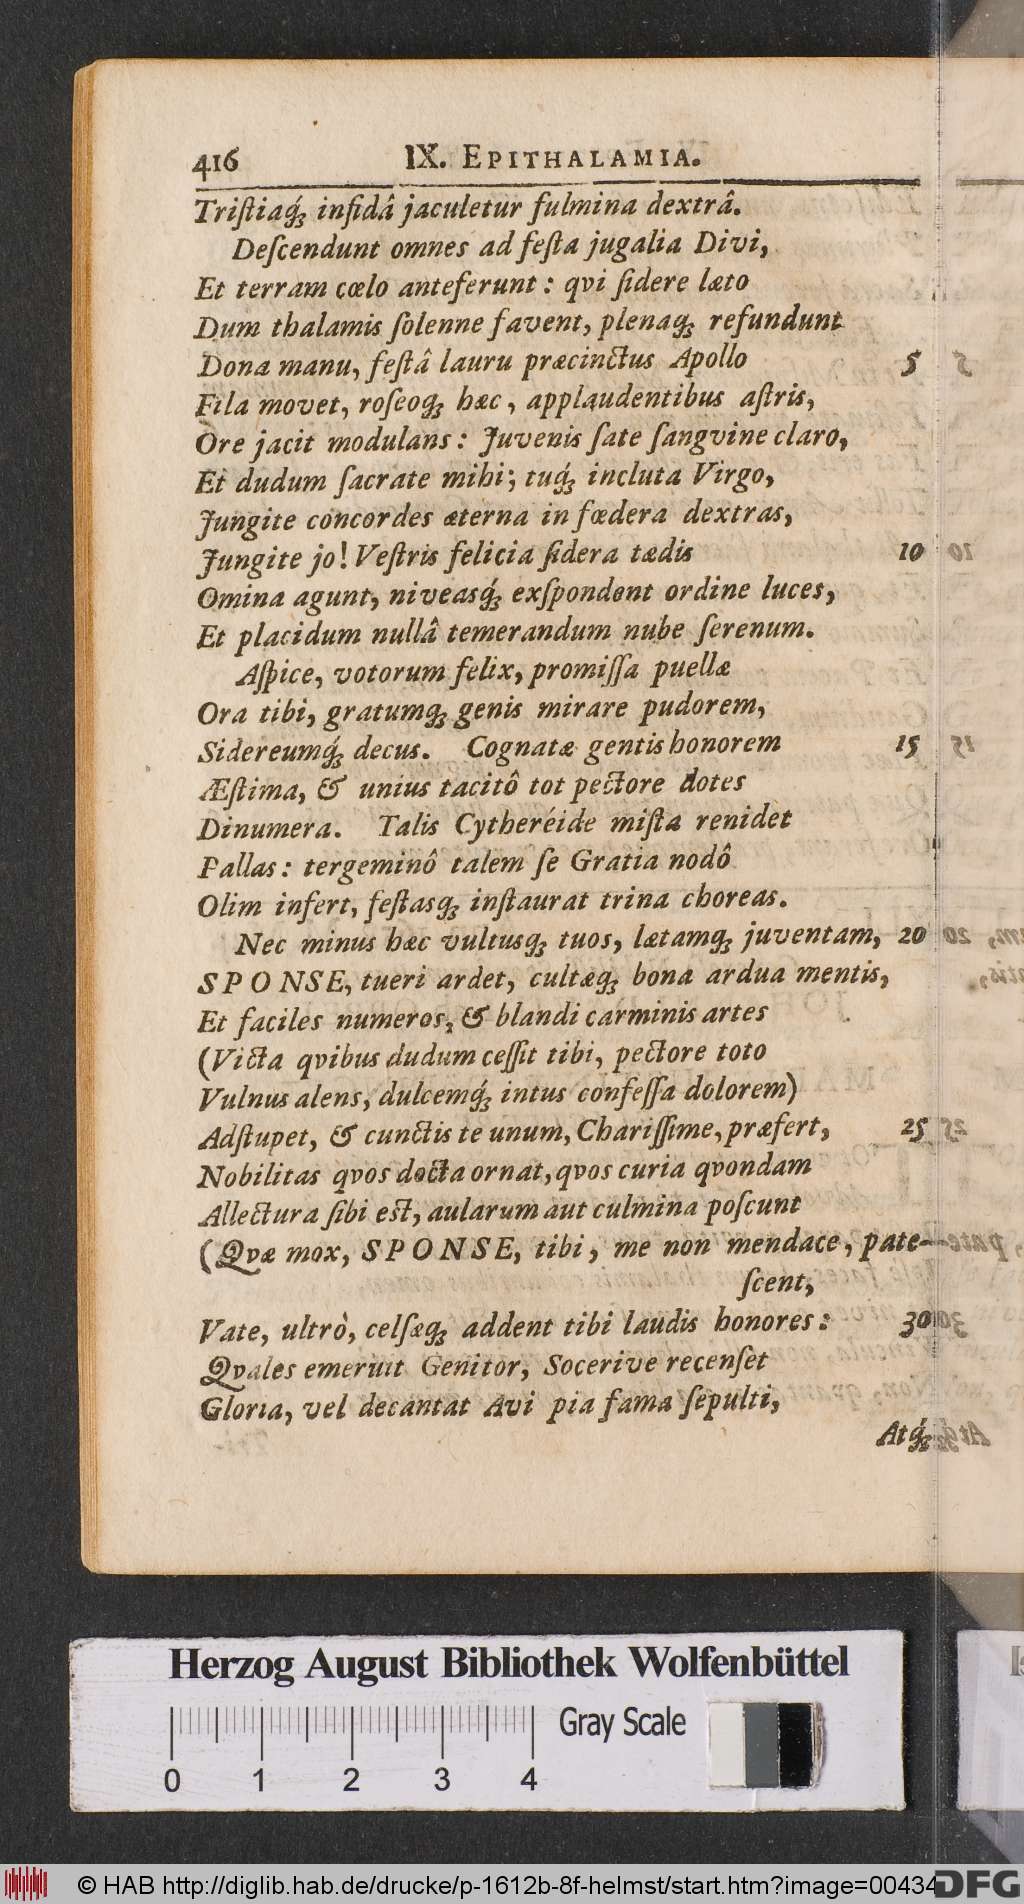 416 IX. EPITHALAMIA.
Triſtiaq́ꝫ infidâ jaculetur fulmina dextrâ.
Deſcendunt omnes ad feſta jugalia Divi,
Et terram cœlo anteferunt: qvi ſidere læto
Dum thalamis ſolenne favent, plenaqꝫ refundunt
Dona manu, feſtâ lauru præcinctus Apollo 5
Fila movet, roſeoqꝫ hæc, applaudentibus aſtris,
Ore jacit modulans: Juvenis ſate ſangvine claro,
Et dudum ſacrate mihi; tuq́ꝫ incluta Virgo,
Jungite concordes æterna in fœdera dextras,
Jungite jo! Veſtris felicia ſidera tædis 10
Omina agunt, niveasq́ꝫ exſpondent ordine luces,
Et placidum nullâ temerandum nube ſerenum.
Aſpice, votorum felix, promiſſa puellæ
Ora tibi, gratumqꝫ genis mirare pudorem,
Sidereumq́ꝫ decus. Cognatæ gentis honorem 15
Æſtima, & unius tacitô tot pectore dotes
Dinumera. Talis Cytheréide miſta renidet
Pallas: tergeminô talem ſe Gratia nodô
Olim infert, feſtasqꝫ inſtaurat trina choreas.
Nec minus hæc vultusqꝫ tuos, lætamqꝫ juventam, 20
SPONSE, tueri ardet, cultæqꝫ bona ardua mentis,
Et faciles numeros, & blandi carminis artes
(Victa qvibus dudum ceſſit tibi, pectore toto
Vulnus alens, dulcemq́ꝫ intus confeſſa dolorem)
Adſtupet, & cunctis te unum, Chariſſime, præfert, 25
Nobilitas qvos docta ornat, qvos curia qvondam
Allectura ſibi est, aularum aut culmina poſcunt
(Qvæ mox, SPONSE, tibi, me non mendace, pate-
ſcent,
Vate, ultrò, celſæqꝫ addent tibi laudis honores: 30
Qvales emeruit Genitor, Socerive recenſet
Gloria, vel decantat Avi pia fama ſepulti,
Atq́ꝫ
Herzog August Bibliothek Wolfenbüttel
Gray Scale
0 1 2 3 4
© HAB http://diglib.hab.de/drucke/p-1612b-8f-helmst/start.htm?image=00434
DFG